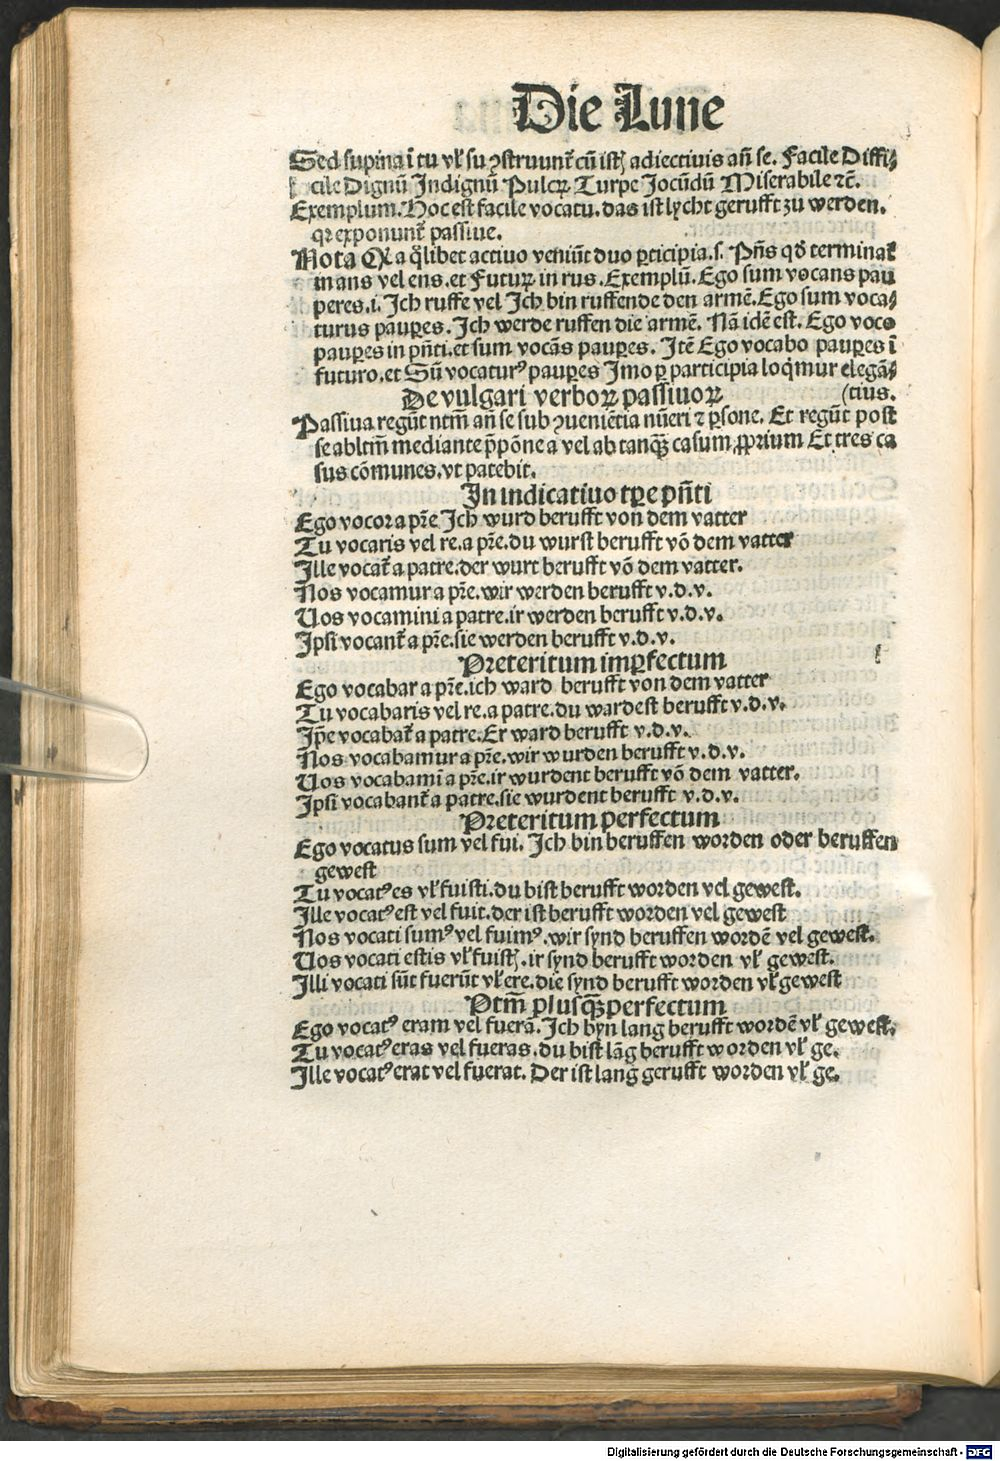 Die Lune
Sed supina ī tu vł su ꝯstruunt̄ cū istꝭ adiectiuis an̄ se. Facile Diffi⸗
cile Dignū Indignū Pulcꝝ Turpe Jocūdū Miserabile ⁊c̄.
Exemplum. Hoc est facile vocatu. das ist lycht gerufft zu werden.
qꝛ exponunt̄ passiue.
Nota Ꝙ a q̄libet actiuo veniūt duo ꝑticipia. s. Pn̄s qd̄ terminat̄
in ans vel ens. et Futuꝝ in rus. Exemplū. Ego sum vocans pau
peres. i. Ich ruffe vel Ich bin ruffende den armē. Ego sum voca⸗
turus pauꝑes. Ich werde ruffen die armē. Nā idē est. Ego voco
pauꝑes in pn̄ti. et sum vocās pauꝑes. Itē Ego vocabo pauꝑes ī
futuro. et Sū vocaturꝰ pauꝑes Imo ꝑ participia loq̄mur elegā⸗
De vulgari verboꝝ passiuoꝝ (tius.
Passiua regūt ntm̄ an̄ se sub ꝯueniētia nūeri ⁊ ꝑsone. Et regūt post
se abltm̄ mediante p̄pōne a vel ab tanqꝫ casum ꝓprium Et tres ca
sus cōmunes. vt patebit.
In indicatiuo tꝑe pn̄ti
Ego vocor a pr̄e Ich wurd berufft von dem vatter
Tu vocaris vel re. a pr̄e. du wurst berufft vō dem vatter
Ille vocat̄ a patre. der wurt berufft vō dem vatter.
Nos vocamur a pr̄e. wir werden berufft v. d. v.
Uos vocamini a patre. ir werden berufft v. d. v.
Ipsi vocant̄ a pr̄e. sie werden berufft v. d. v.
Preteritum imꝑfectum
Ego vocabar a pr̄e. ich ward berufft von dem vatter
Tu vocabaris vel re. a patre. du wardest berufft v. d. v.
Ip̄e vocabat̄ a patre. Er ward berufft v. d. v.
Nos vocabamur a pr̄e. wir wurden berufft v. d. v.
Uos vocabamī a pr̄e. ir wurdent berufft vō dem vatter.
Ipsi vocabant̄ a patre. sie wurdent berufft v. d. v.
Preteritum perfectum
Ego vocatus sum vel fui. Ich bin beruffen worden oder beruffen
gewest
Tu vocatꝰ es vł fuisti. du bist berufft worden vel gewest.
Ille vocatꝰ est vel fuit. der ist berufft worden vel gewest
Nos vocati sumꝰ vel fuimꝰ. wir synd beruffen wordē vel gewest.
Uos vocati estis vł fuistꝭ. ir synd berufft worden vł gewest.
Illi vocati sūt fuerūt vł ere. die synd berufft worden vł gewest
Ptm̄ plusqꝫperfectum
Ego vocatꝰ eram vel fuerā. Ich byn lang berufft wordē vł gewest.
Tu vocatꝰ eras vel fueras. du bist lāg berufft worden vł ge.
Ille vocatꝰ erat vel fuerat. Der ist lang gerufft worden vł ge.
Digitalisierung gefördert durch die Deutsche Forschungsgemeinschaft - DFG